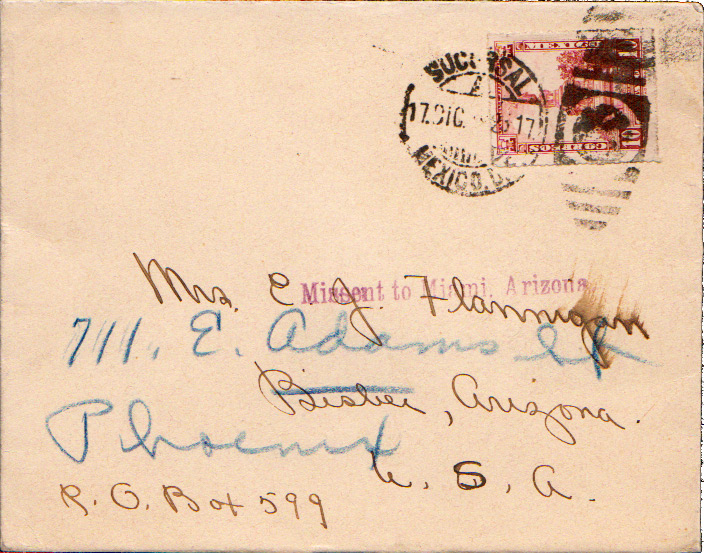 MEXICO
10 10
CORREOS
SUCURSAL
A
17.DIC. 17
MEXICO, D.
Missent to Miami, Arizona
Mrs. E. J. Flannigan
711. E. Adams St
Bisbee, Arizona.
Phoenix
U. S. A.
P. O. Box 599